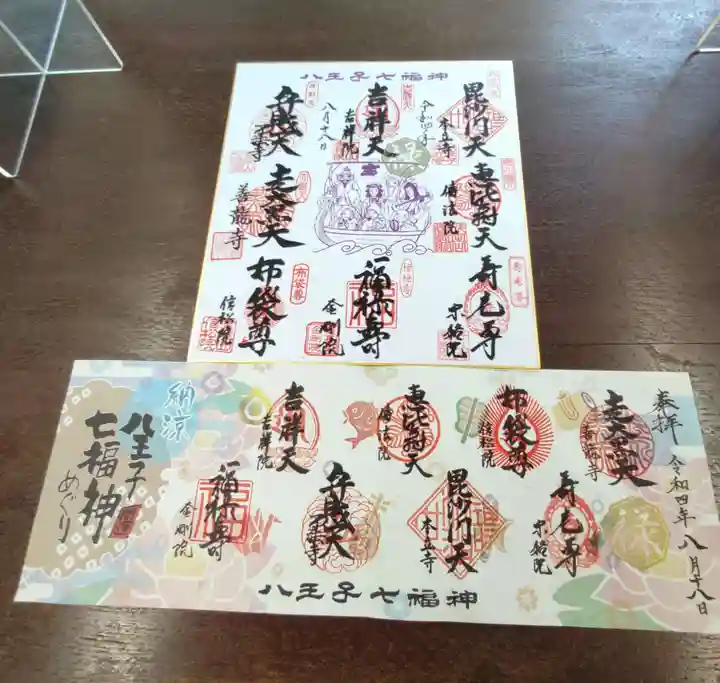 八王子七福神
毘沙門天
本立寺
令和四年
八月十八日
吉祥天
吉祥院
弁財天
恵比寿天
傳法院
走大黒天
善龍寺
寿老尊
宗格院
福禄寿
金剛院
布袋尊
信松院
奉拝
令和四年八月十八日
走大黒天
善龍寺
布袋尊
信松院
恵比寿天
傳法院
吉祥天
吉祥院
寿老尊
宗格院
毘沙門天
本立寺
弁財天
福禄寿
金剛院
納涼
八王子
七福神
めぐり
八王子七福神